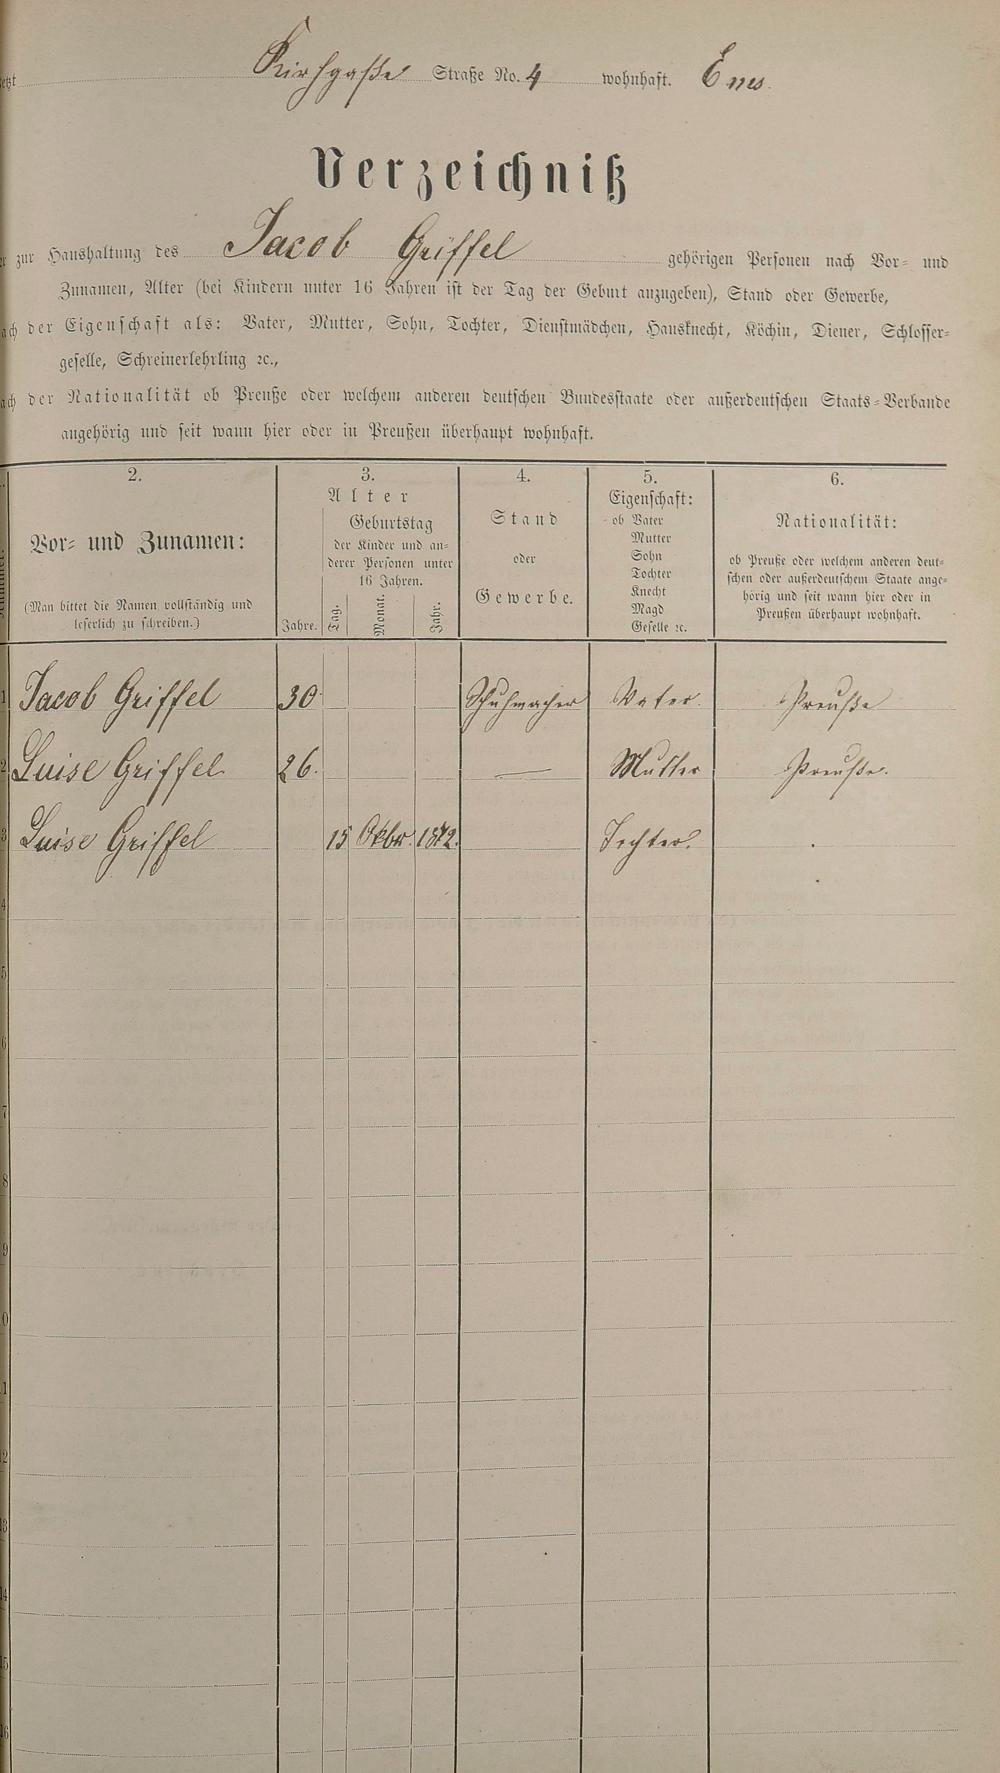 Kirchgaße Straße No. 4 wohnhaft. Ems
Verzeichniß
zur Haushaltung des Jacob Griffel gehörigen Personen nach Vor- und
Zunamen, Alter (bei Kindern unter 16 Jahren ist der Tag der Geburt anzugeben), Stand oder Gewerbe,
der Eigenschaft als: Vater, Mutter, Sohn, Tochter, Dienstmädchen, Hausknecht, Köchin, Diener, Schlosser-
geselle, Schreinerlehrling ꝛc.,
der Nationalität ob Preuße oder welchem anderen deutschen Bundesstaate oder außerdeutschen Staats-Verbande
angehörig und seit wann hier oder in Preußen überhaupt wohnhaft.
2.
Vor- und Zunamen:
(Man bittet die Namen vollständig und
leserlich zu schreiben.)
3.
Alter
Geburtstag
der Kinder und an-
derer Personen unter
16 Jahren.
Jahre. Tag. Monat. Jahr.
4.
Stand
oder
Gewerbe.
5.
Eigenschaft:
ob Vater
Mutter
Sohn
Tochter
Knecht
Magd
Geselle ꝛc.
6.
Nationalität:
ob Preuße oder welchem anderen deut-
schen oder außerdeutschem Staate ange-
hörig und seit wann hier oder in
Preußen überhaupt wohnhaft.
1 Jacob Griffel 30 Schuhmacher Vater Preuße
2 Luise Griffel 26. — Mutter Preuße.
3 Luise Griffel 15 Oktbr. 1872. Tochter.
4
5
6
7
8
9
0
1
2
3
4
5
6